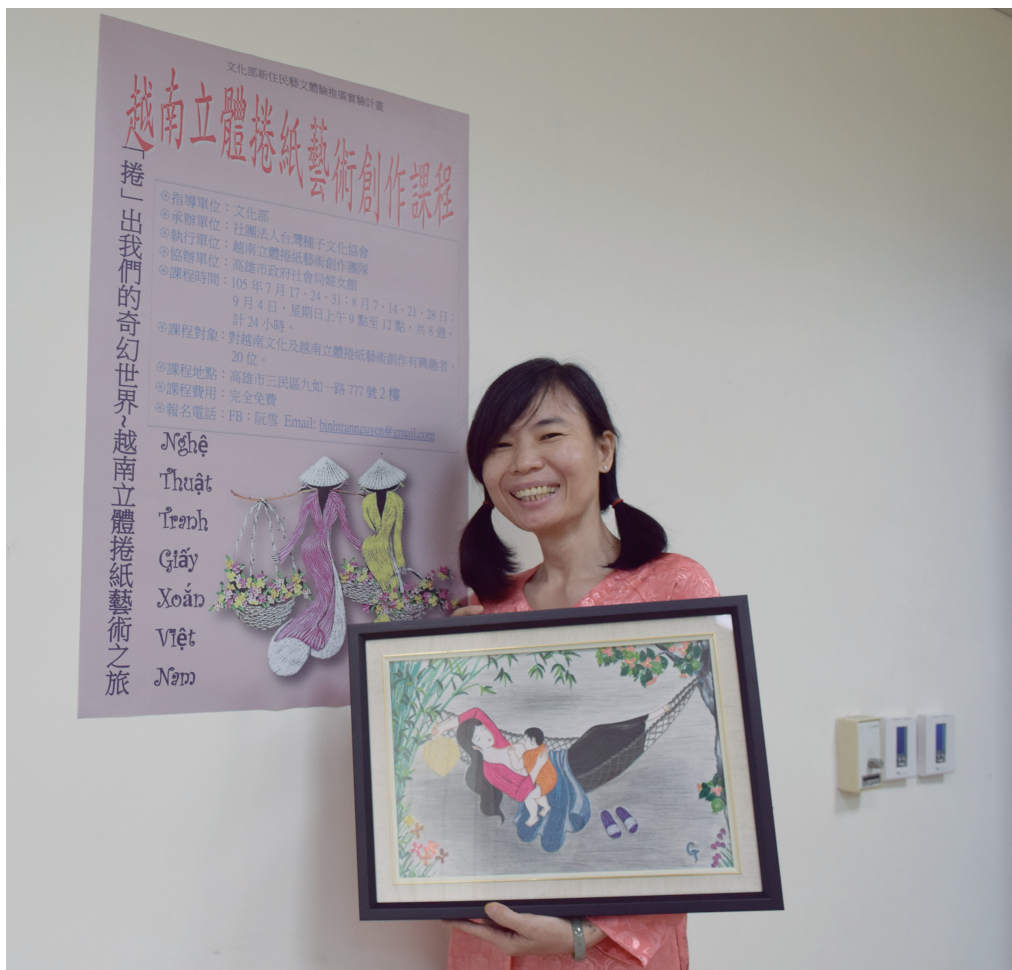 文化部新住民藝文體驗推廣實驗計畫
越南立體捲紙藝術創作課程
「捲」出我們的奇幻世界~越南立體捲紙藝術之旅
◎指導單位：文化部
◎承辦單位：社團法人台灣種子文化協會
◎執行單位：越南立體捲紙藝術創作團隊
◎協辦單位：高雄市政府社會局婦女館
◎課程時間：105 年 7 月 17、24、31；8 月 7、14、21、28 日；
9 月 4 日，星期日上午 9 點至 12 點，共 8 週，
計 24 小時。
◎課程對象：對越南文化及越南立體捲紙藝術創作有興趣者，
20 位。
◎課程地點：高雄市三民區九如一路 777 號 2 樓
◎課程費用：完全免費
◎報名電話：FB：阮雪 Email: binhtrannguyen@gmail.com
Nghệ
Thuật
Tranh
Giấy
Xoắn
Việt
Nam
GT